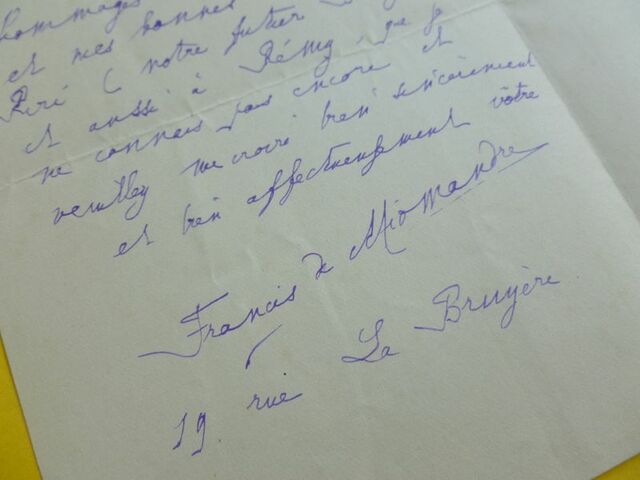 hommages
et mes bonnes
Riri (notre futur
et aussi à Rémy, que je
ne connais pas encore et
veuillez me croire bien sincèrement
et bien affectueusement vôtre
Francis de Miomandre
19 rue La Bruyère